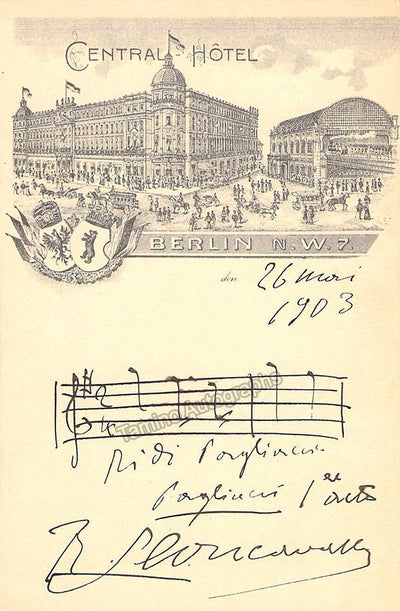 CENTRAL-HÔTEL
BERLIN N.W.7.
den 26 mai
1903
Tamino Autographs
Ridi Pagliaccio
Pagliacci 1er acte
R. Leoncavallo